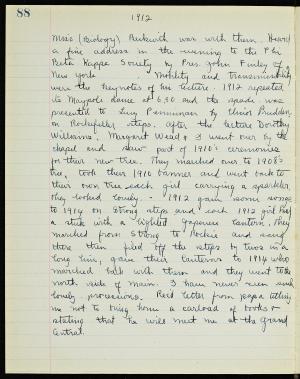 88
1912
Miss (Biology) Beckwith was with them. Heard
a fine address in the evening to the Phi
Beta Kappa Society by Pres. John Finley of
New York. Mobility and transmissibility
were the keynotes of his lecture. 1912 repeated
its Maypole dance at 6:30 and the spade was
presented to Lucy Penniman by Elinor Prudden
on Rockefeller steps. After the lecture Dorothy
Williams, Margaret Wead & I went over by the
chapel and saw part of 1910's ceremonies
for their new tree. They marched over to 1908's
tree, took their 1910 banner and went back to
their own tree, each girl carrying a sparkler,
they looked lovely. - 1912 gave some songs
to 1914 on Strong steps and each 1912 girl had
a stick with a lighted Japanese lantern, they
marched from Strong to Rockie and sang
there then filed off the steps by twos in a
long line, gave their lanterns to 1914 who
marched back with them and they went to the
north side of Main. I have never seen such
lovely processions. Rec'd letter from papa telling
me not to bring home a carload of books &
stating that he will meet me at the Grand
Central.